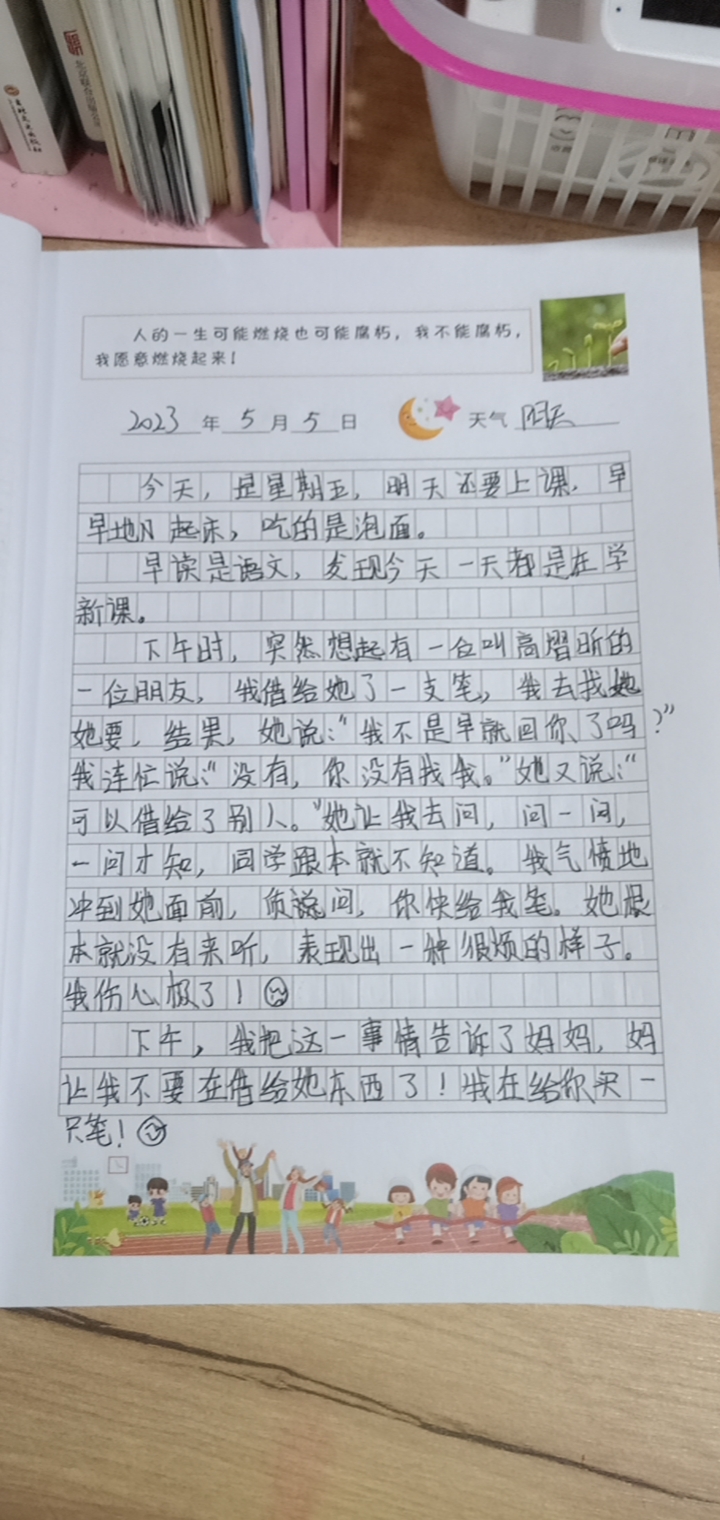 北京联合出版公司
人的一生可能燃烧也可能腐朽，我不能腐朽，
我愿意燃烧起来！
2023年5月5日 天气 阴天
今天，是星期五，明天还要上课，早
早地从起床，吃的是泡面。
早读是语文，发现今天一天都是在学
新课。
下午时，突然想起有一位叫高熠昕的
一位朋友，我借给她了一支笔，我去找她
她要，结果，她说：“我不是早就回你了吗？”
我连忙说：“没有，你没有找我。”她又说：“
可以借给了别人。”她让我去问，问一问，
一问才知，同学跟本就不知道。我气愤地
冲到她面前，质说问，你快给我笔。她根
本就没有来听，表现出一种很烦的样子。
我伤心极了！
下午，我把这一事情告诉了妈妈，妈
让我不要在借给她东西了！我在给你买一
只笔！